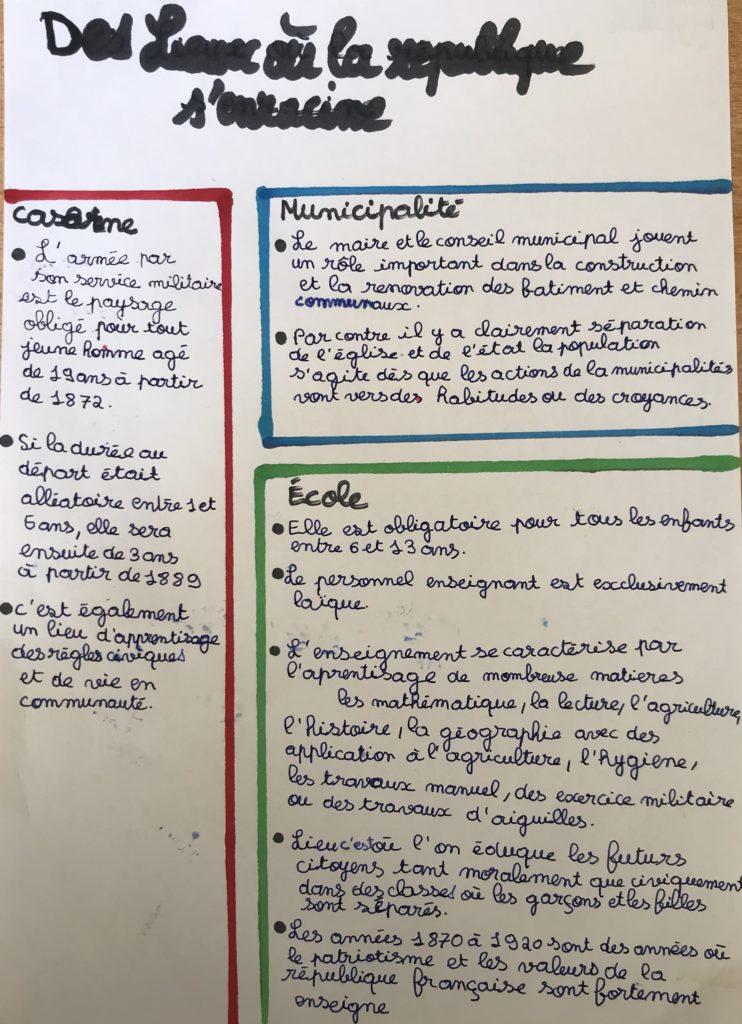 Des Lieux où la république
s'enracine
caserne
● L'armée par
son service militaire
est le paysage
obligé pour tout
jeune homme agé
de 19 ans à partir
de 1872.
● Si la durée au
départ était
alléatoire entre 1 et
5 ans, elle sera
ensuite de 3 ans
à partir de 1889
● c'est également
un lieu d'apprentisage
des règles civiques
et de vie en
communauté.
Municipalité
● Le maire et le conseil municipal jouent
un rôle important dans la construction
et la renovation des batiment et chemin
communaux.
● Par contre il y a clairement séparation
de l'église et de l'état la population
s'agite dès que les actions de la municipalités
vont vers des habitudes ou des croyances.
École
● Elle est obligatoire pour tous les enfants
entre 6 et 13 ans.
● Le personnel enseignant est exclusivement
laïque.
● L'enseignement se caractérise par
l'aprentisage de nombreuse matieres
les mathématique, la lecture, l'agriculture,
l'histoire, la géographie avec des
application à l'agriculture, l'hygiene,
les travaux manuel, des exercice militaire
ou des travaux d'aiguilles.
● Lieu c'est où l'on éduque les futurs
citoyens tant moralement que civiquement
dans des classes où les garçons et les filles
sont séparés.
● Les années 1870 à 1920 sont des années où
le patriotisme et les valeurs de la
république française sont fortement
enseigne